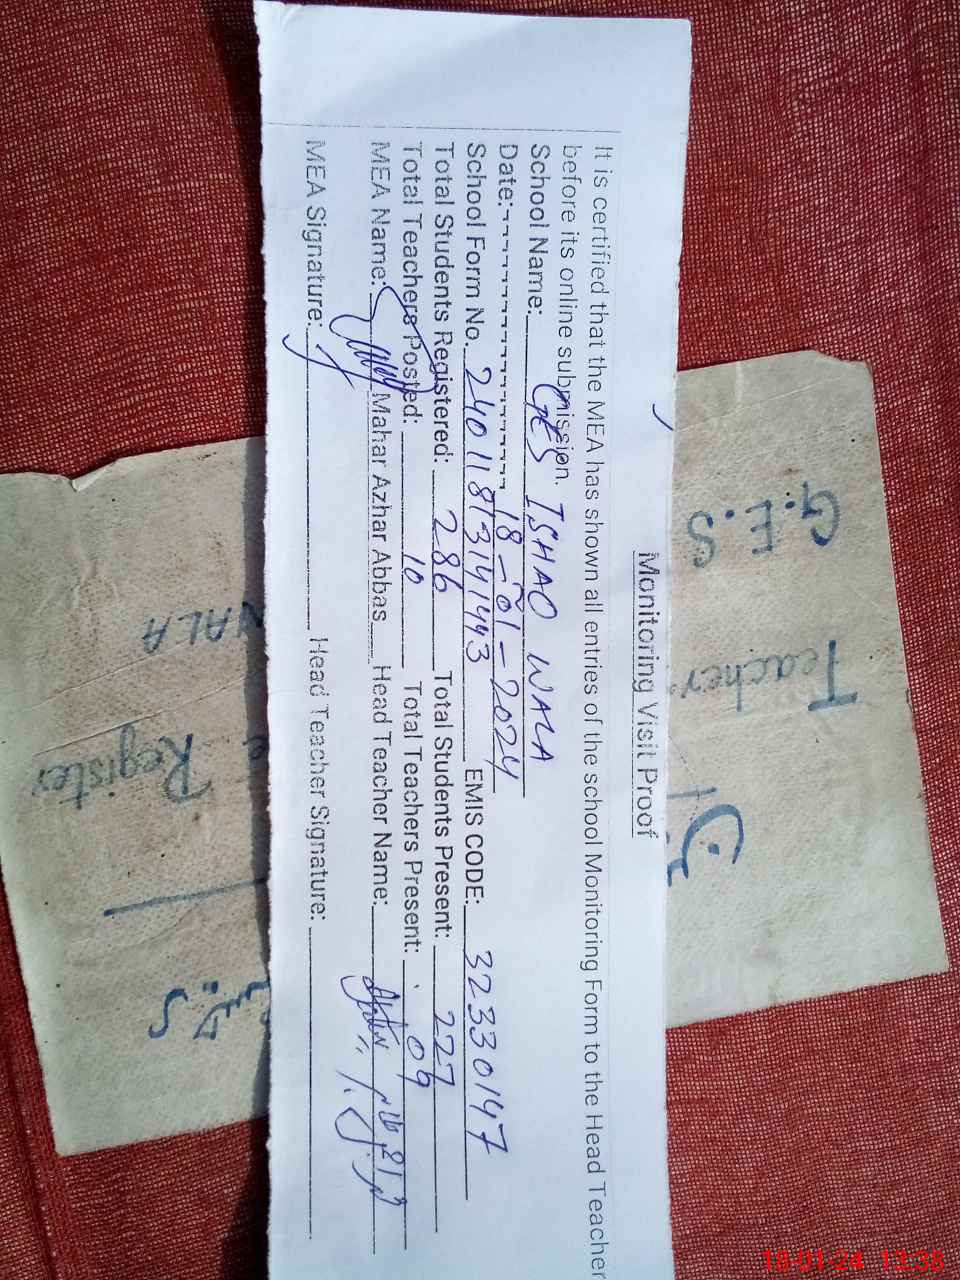 Monitoring Visit Proof
It is certified that the MEA has shown all entries of the school Monitoring Form to the Head Teacher
before its online submission.
School Name: GES ISHAQ WALA
Date: 18-01-2024
School Form No. 24011813141443 EMIS CODE: 32330147
Total Students Registered: 286 Total Students Present: 227
Total Teachers Posted: 10 Total Teachers Present: 09
MEA Name: Mahar Azhar Abbas Head Teacher Name:
MEA Signature: Head Teacher Signature:
G.E.S
Teacher
WALA
Register
18-01-24 13:38